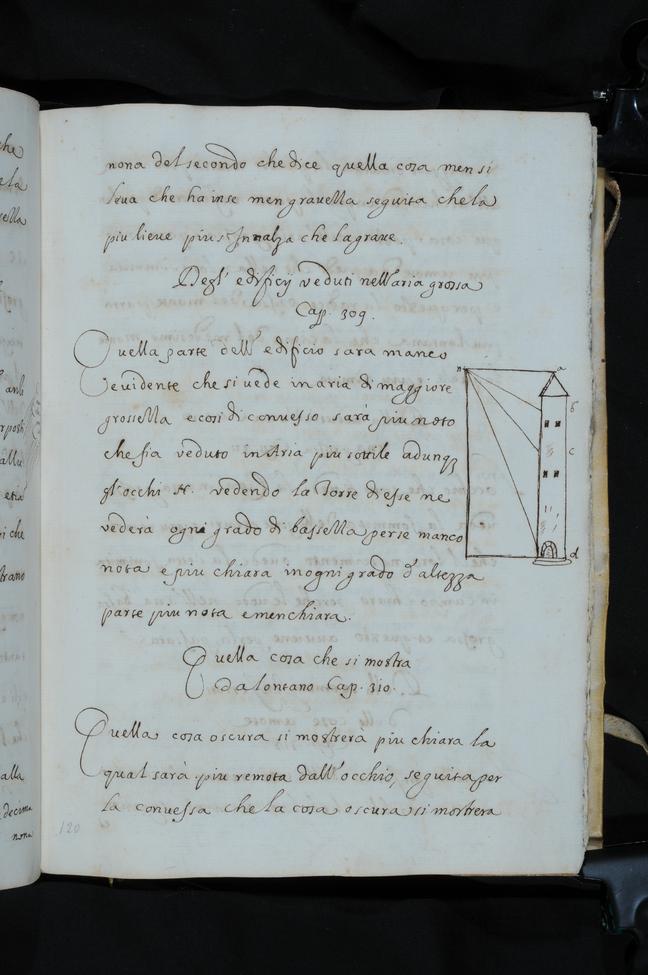 nona del secondo che dice quella cosa men si
leua che ha in se men grauezza seguita che la
piu lieue piu s'Innalza che la graue.
Degl' edificij veduti nell'aria grossa
Cap. 309.
Quella parte dell' edificio sara manco
euidente che si vede in aria di maggiore
grossezza e cosi di conuesso sarà piu noto
che sia veduto in Aria piu sottile adunq
gl'occhi N. vedendo la Torre di esse ne
vederà ogni grado di bassezza parte manco
nota e piu chiara in ogni grado d'altezza
parte piu nota e men chiara.
Quella cosa che si mostra
da lontano Cap. 310.
Quella cosa oscura si mostrera piu chiara la
qual sarà piu remota dall'occhio, seguita per
la conuessa che la cosa oscura si mostrera
n a
b
c
d
120
che
alla
decima
nona